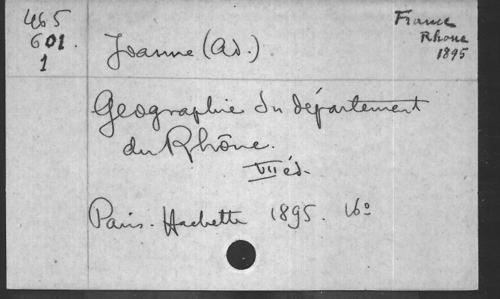 465
601.
1
France
Rhone
1895
Joanne (Ad.)
Géographie du département
du Rhône.
VII éd.
Paris. Hachette 1895. 16º